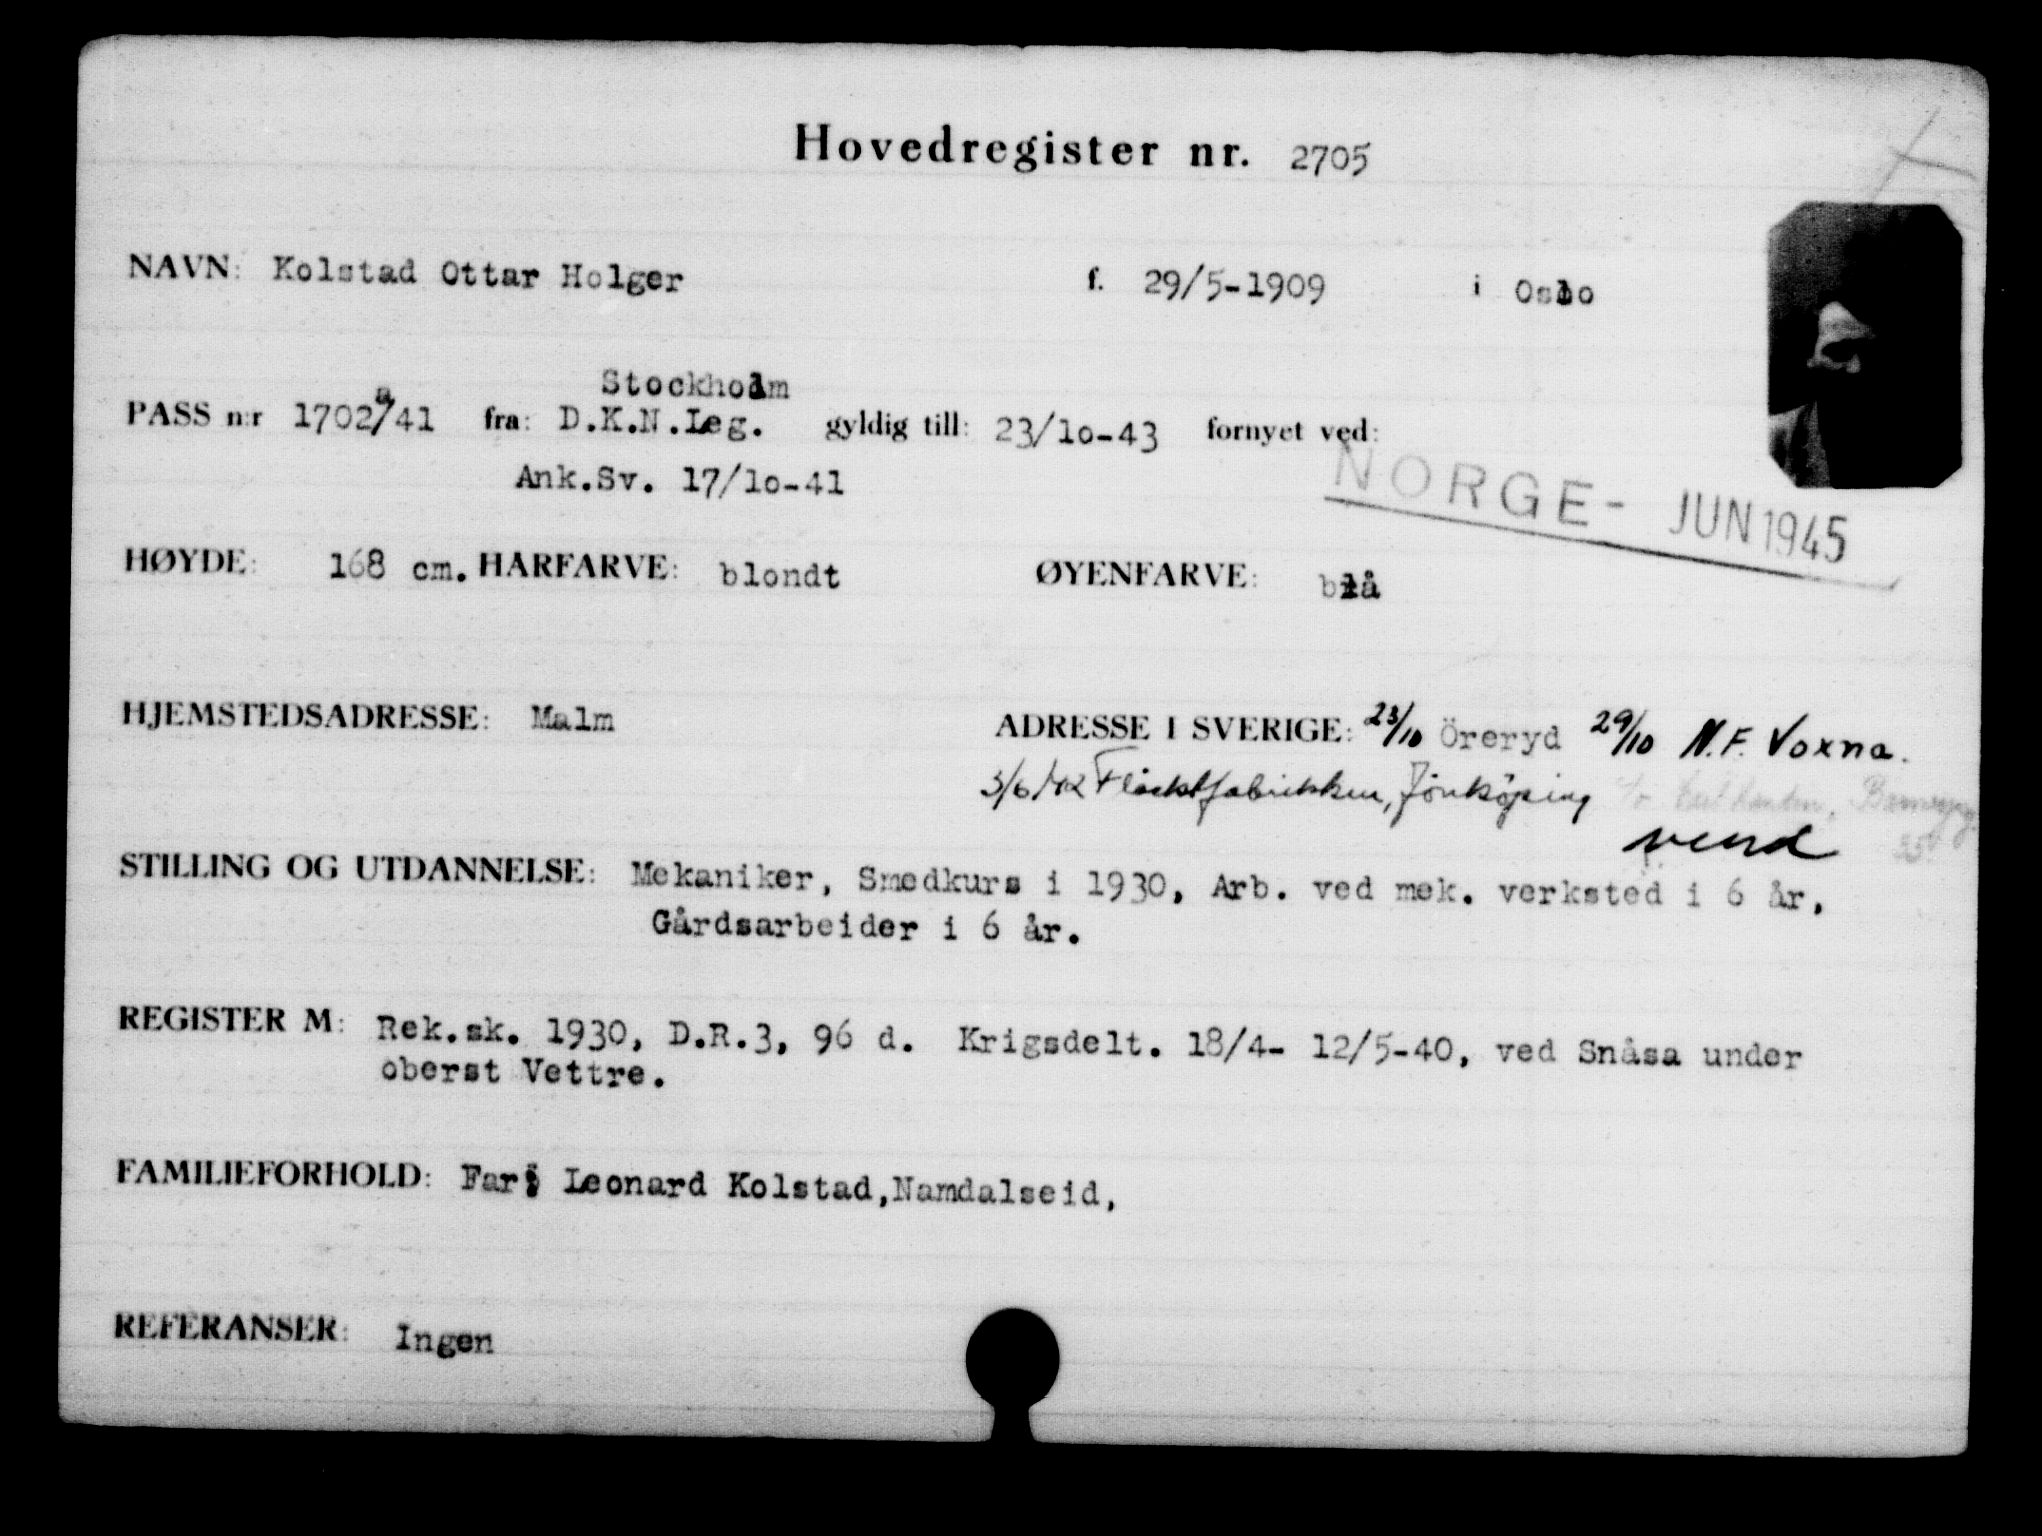 Hovedregister nr. 2705
NAVN: Kolstad Ottar Holger f. 29/5-1909 i Oslo
Stockholm
PASS n:r 1702a/41 fra: D.K.N.Leg. gyldig till: 23/10-43 fornyet ved:
Ank.Sv. 17/10-41
NORGE - JUN 1945
HØYDE: 168 cm. HÅRFARVE: blondt ØYENFARVE: blå
HJEMSTEDSADRESSE: Malm ADRESSE I SVERIGE: 23/10 Öreryd 29/10 N.F. Voxna.
3/6/42 Fläcktfabrikken, Jönköping
vend
STILLING OG UTDANNELSE: Mekaniker, Smedkurs i 1930, Arb. ved mek. verksted i 6 år,
Gårdsarbeider i 6 år.
REGISTER M: Rek.sk. 1930, D.R.3, 96 d. Krigsdelt. 18/4- 12/5-40, ved Snåsa under
oberst Vettre.
FAMILIEFORHOLD: Far: Leonard Kolstad, Namdalseid,
REFERANSER: Ingen